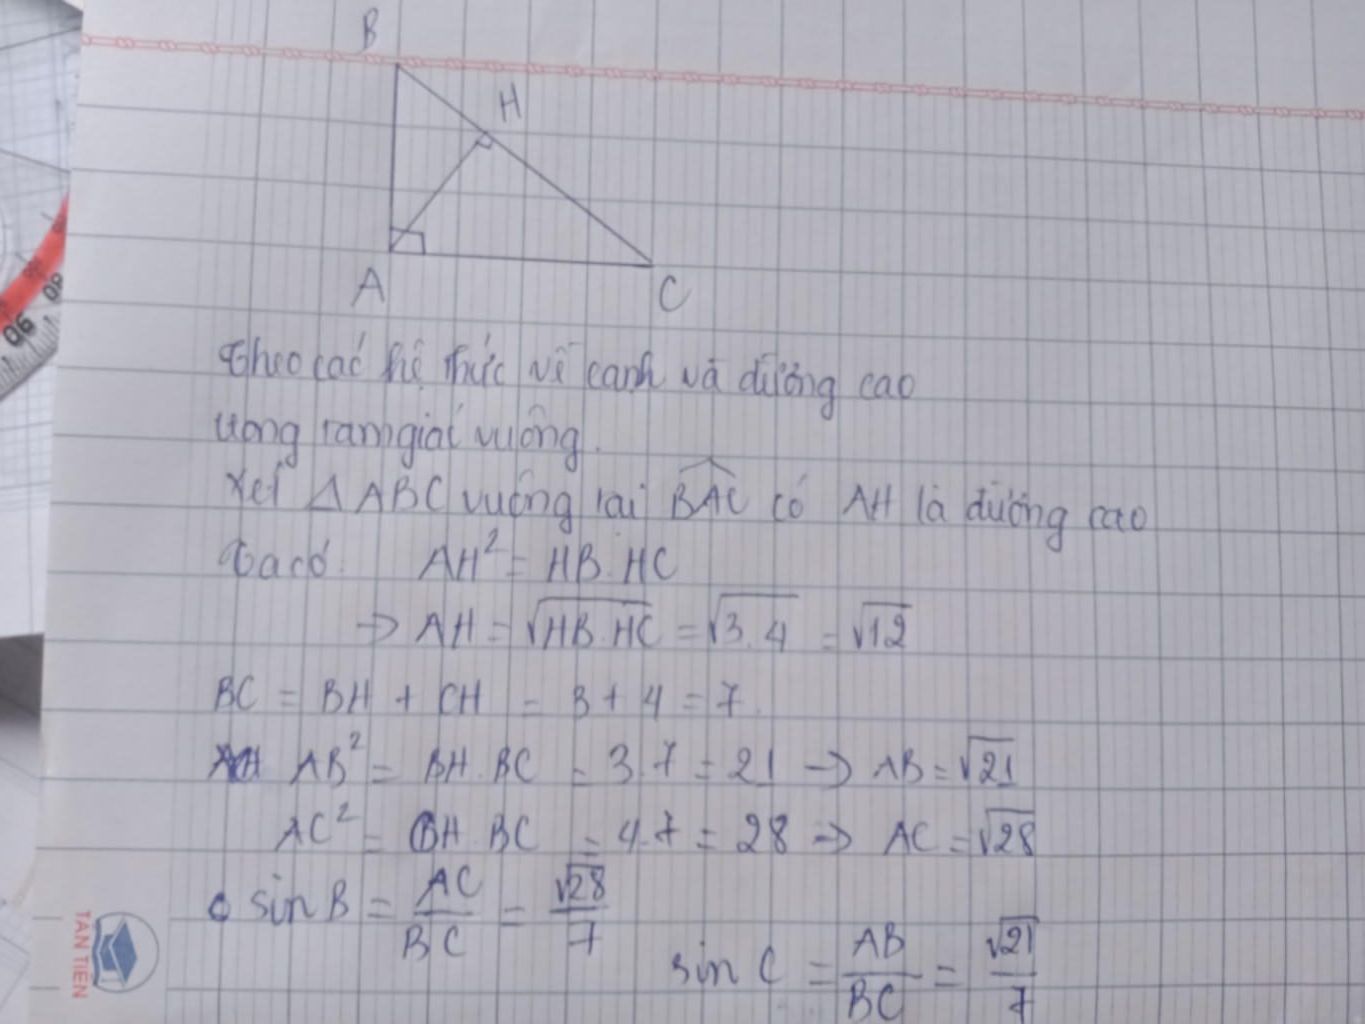 B
H
A
C
Theo các hệ thức về cạnh và đường cao
trong tam giác vuông.
Xét △ABC vuông tại \widehat{BAC} có AH là đường cao
Ta có: AH² = HB.HC
→ AH = √(HB.HC) = √(3.4) = √12
BC = BH + CH = 3 + 4 = 7.
AB² = BH.BC = 3.7 = 21 → AB = √21
AC² = CH.BC = 4.7 = 28 → AC = √28
sin B = AC/BC = √28/7
sin C = AB/BC = √21/7
TÂN TIẾN
90
80